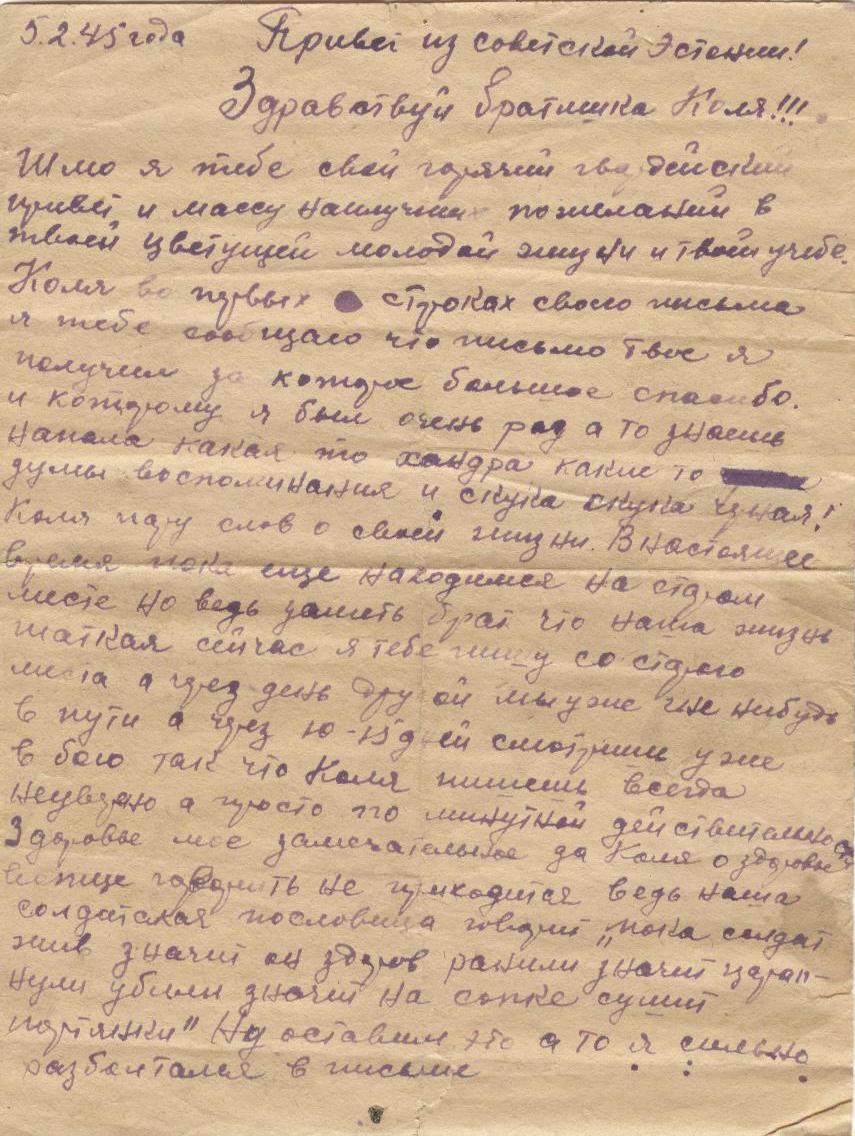 5.2.45 года Привет из советской Эстонии!
Здравствуй братишка Коля!!!
Шлю я тебе свой горячий гвардейский
привет и массу наилучших пожеланий в
твоей цветущей молодой жизни и твоей учебе.
Коля во первых строках своего письма
я тебе сообщаю что письмо твое я
получил за которое большое спасибо.
и которому я был очень рад а то знаешь
напала какая то хандра какие то
думы воспоминания и скука скука
Коля пару слов о своей жизни. В настоящее
время пока еще находимся на старом
месте но ведь знаеть брат что наша жизнь
шаткая сейчас я тебе пишу со старого
места а через день другой мы уже где нибудь
в пути а через 10-15 дней смотришь уже
в бою так что Коля пишешь всегда
неуверено а просто по минутной действительности
Здоровье мое замечательное да Коля о здоровье
вопще говорить не приходится ведь наша
солдатская пословица говорит „пока солдат
жив значит он здоров ранили значит царап-
нули убили значит на сопке сушит
портянки" Ну оставим это а то я сильно
разболтался в письме